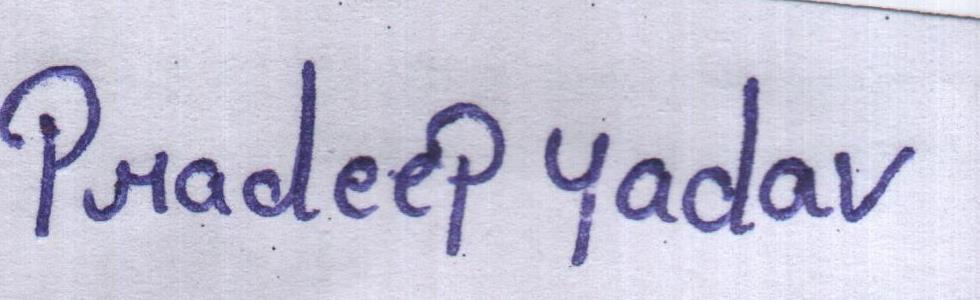 Pradeep Yadav